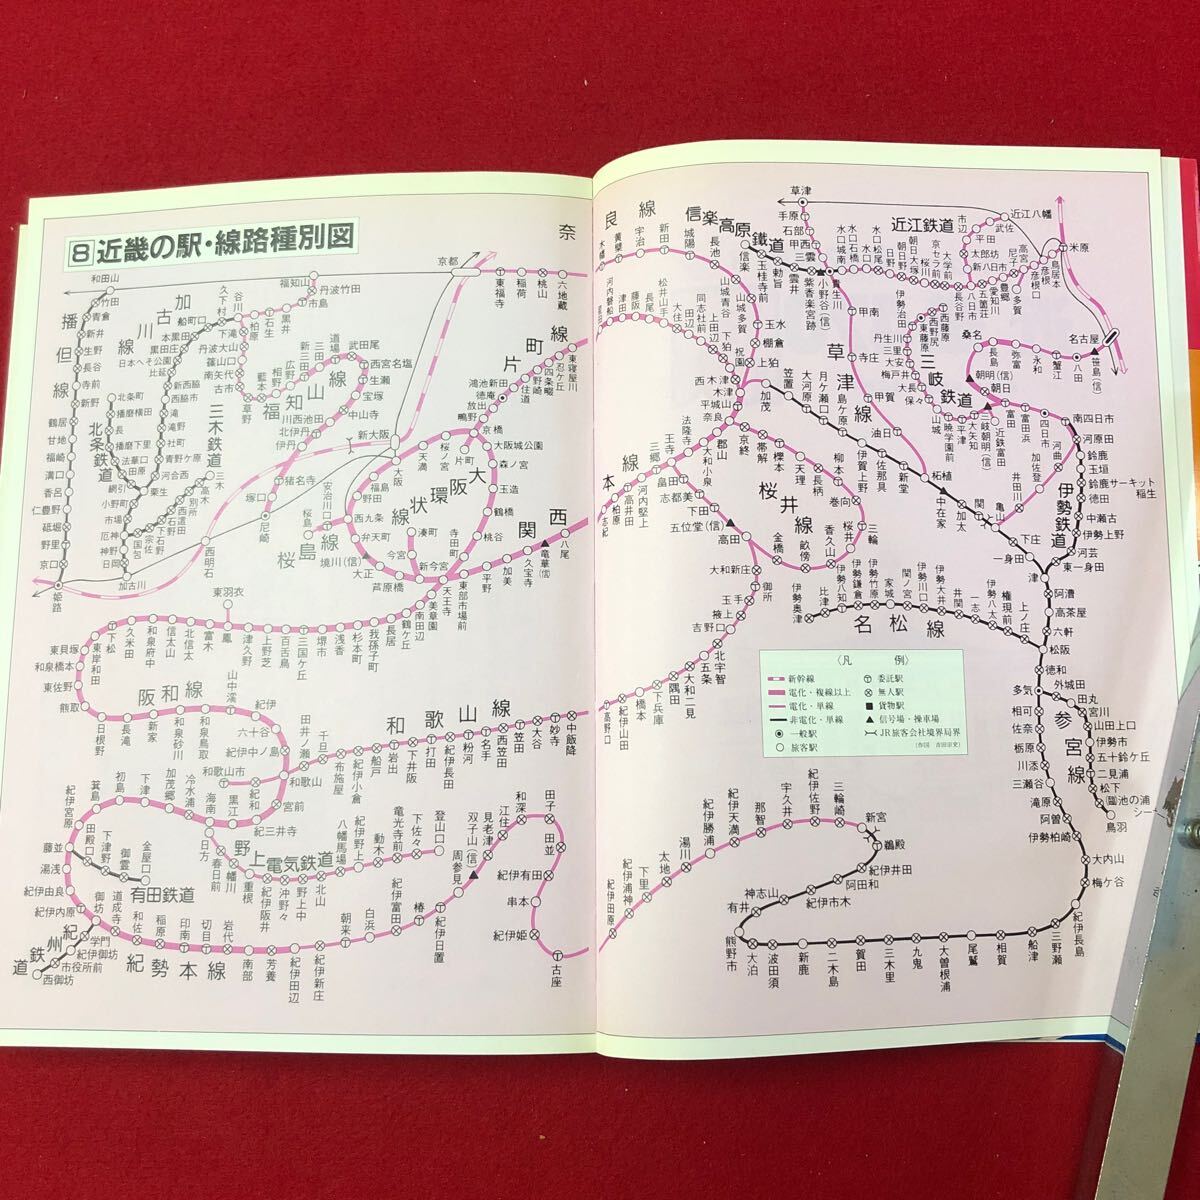 8 近畿の駅・線路種別図
播但線
加古川線
北条鉄道
三木鉄道
福知山線
片町線
大阪環状線
桜島線
関西
阪和線
和歌山線
野上電気鉄道
有田鉄道
紀州鉄道
紀勢本線
奈
良線
信楽高原鐵道
近江鉄道
草津線
三岐鉄道
伊勢鉄道
桜井線
名松線
参宮線
本線
和田山
竹田
青倉
新井
生野
長谷
寺前
新野
鶴居
甘地
福崎
溝口
香呂
仁豊野
砥堀
野里
京口
姫路
船町口
本黒田
黒田庄
日本へそ公園
比延
新西脇
西脇市
滝
滝野
社町
青野ケ原
河合西
粟生
小野町
市場
厄神
神野
日岡
加古川
北条町
播磨横田
長
播磨下里
法華口
田原
網引
三木
高木
別所
西這田
石野
下石野
国包
宗佐
福知山
丹波竹田
市島
黒井
石生
柏原
谷川
久下村
下滝
丹波大山
篠山口
南矢代
古市
草野
藍本
相野
広野
新三田
三田
道場
武田尾
西宮名塩
生瀬
宝塚
中山寺
川西池田
北伊丹
伊丹
猪名寺
塚口
尼崎
西明石
新大阪
大阪
京都
東福寺
稲荷
桃山
六地蔵
東寝屋川
忍ケ丘
四条畷
野崎
住道
鴻池新田
徳庵
放出
鴫野
京橋
片町
桜ノ宮
天満
大阪城公園
森ノ宮
玉造
鶴橋
桃谷
寺田町
天王寺
新今宮
今宮
芦原橋
大正
弁天町
西九条
野田
福島
安治川口
桜島
境川(信)
湊町
東部市場前
平野
加美
久宝寺
竜華(信)
八尾
美章園
南田辺
鶴ケ丘
長居
我孫子町
杉本町
浅香
堺市
三国ケ丘
百舌鳥
上野芝
津久野
鳳
東羽衣
富木
北信太
信太山
和泉府中
久米田
下松
東岸和田
東貝塚
和泉橋本
東佐野
熊取
日根野
長滝
新家
和泉砂川
和泉鳥取
山中渓
紀伊
六十谷
紀伊中ノ島
和歌山
和歌山市
田井ノ瀬
千旦
布施屋
紀伊小倉
船戸
岩出
下井阪
打田
紀伊長田
粉河
名手
西笠田
笠田
大谷
妙寺
中飯降
紀和
宮前
紀三井寺
黒江
海南
冷水浦
加茂郷
下津
初島
箕島
紀伊宮原
藤並
湯浅
紀伊由良
紀伊内原
御坊
道成寺
和佐
稲原
印南
切目
岩代
南部
芳養
紀伊田辺
紀伊新庄
朝来
白浜
紀伊富田
椿
紀伊日置
周参見
双子山(信)
見老津
江住
和深
田子
田並
紀伊有田
串本
紀伊姫
古座
日方
春日前
幡川
重根
紀伊阪井
沖野々
野上中
北山
八幡馬場
紀伊野上
動木
竜光寺前
下佐々
登山口
田殿口
下津野
御霊
金屋口
学門
紀伊御坊
市役所前
西御坊
木幡
黄檗
宇治
新田
城陽
長池
山城青谷
山城多賀
玉水
棚倉
上狛
木津
平城山
奈良
河内磐船
津田
藤阪
長尾
松井山手
大住
上田辺
田辺
同志社前
下狛
祝園
西木津
加茂
笠置
大河原
月ケ瀬口
島ケ原
伊賀上野
佐那具
新堂
柘植
中在家
加太
関
亀山
下庄
津
井田川
加佐登
河曲
河原田
南四日市
四日市
富田浜
富田
朝日
朝明(信)
桑名
長島
弥富
永和
蟹江
八田
笹島(信)
名古屋
信楽
玉桂寺前
勅旨
雲井
紫香楽宮跡
小野谷(信)
貴生川
草津
手原
石部
甲西
三雲
甲南
寺庄
甲賀
油日
水口城南
水口石橋
水口
水口松尾
日野
朝日野
朝日大塚
桜川
京セラ前
大学前
長谷野
八日市
市辺
平田
武佐
近江八幡
太郎坊
新八日市
五箇荘
愛知川
豊郷
尼子
高宮
多賀
彦根口
彦根
鳥居本
米原
西藤原
西野尻
東藤原
伊勢治田
丹生川
三里
大安
梅戸井
大長
保々
山城
暁学園前
平津
大矢知
三岐朝明(信)
近鉄富田
鈴鹿
玉垣
鈴鹿サーキット稲生
徳田
中瀬古
伊勢上野
河芸
東一身田
一身田
阿漕
高茶屋
六軒
松阪
徳和
多気
外城田
田丸
宮川
山田上口
伊勢市
五十鈴ケ丘
二見浦
松下
(臨)池の浦シー
鳥羽
相可
佐奈
栃原
川添
三瀬谷
滝原
阿曽
伊勢柏崎
大内山
梅ケ谷
紀伊長島
三野瀬
船津
相賀
尾鷲
大曽根浦
九鬼
三木里
賀田
二木島
新鹿
波田須
大泊
熊野市
有井
神志山
紀伊市木
阿田和
紀伊井田
鵜殿
新宮
三輪崎
紀伊佐野
宇久井
那智
紀伊天満
紀伊勝浦
湯川
太地
下里
紀伊浦神
紀伊田原
京終
帯解
櫟本
天理
長柄
柳本
巻向
三輪
桜井
香久山
畝傍
金橋
高田
五位堂(信)
下田
志都美
畠田
王寺
三郷
法隆寺
大和小泉
郡山
河内堅上
高井田
柏原
志紀
大和新庄
御所
玉手
掖上
吉野口
北宇智
五条
大和二見
隅田
下兵庫
橋本
紀伊山田
高野口
伊勢奥津
比津
伊勢八知
伊勢鎌倉
伊勢竹原
家城
関ノ宮
伊勢川口
伊勢大井
井関
一志
伊勢八太
権現前
上ノ庄
〈凡例〉
新幹線
電化・複線以上
電化・単線
非電化・単線
一般駅
旅客駅
委託駅
無人駅
貨物駅
信号場・操車場
JR旅客会社境界局界
(作図 吉田宗史)